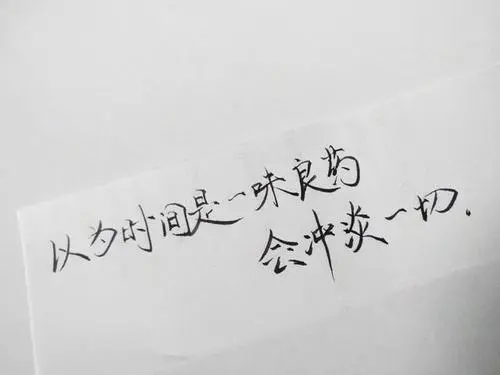 以为时间是一味良药
会冲淡一切.